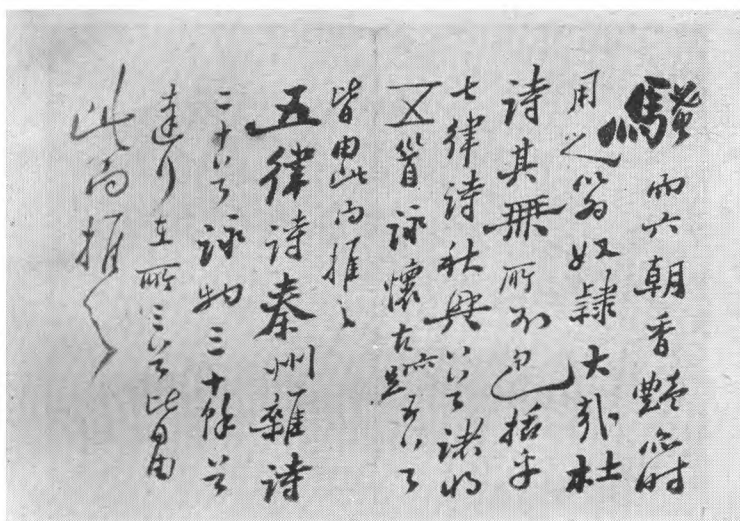 騷而六朝香豔亦時
用之以爲奴隸大哉杜
詩其無所不包括乎
七律詩秋興八首諸將
五首詠懷古跡五首
皆由此而推之
五律詩秦州雜詩
二十首詠物三十餘首
達行在所三首皆由
此而推之